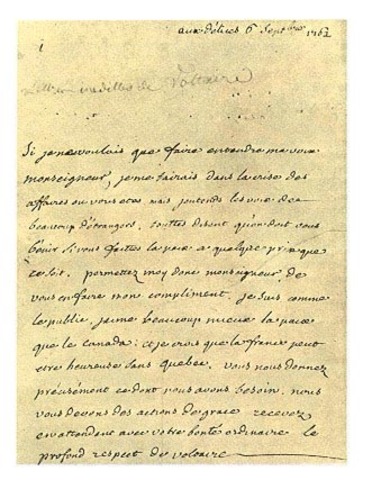 aux délices 6 Septbre 1762
1
Lettres inédittes de Voltaire
Si je ne voulois que faire entendre ma voix
monseigneur, je me tairais dans la crise des
affaires ou vous etes. mais j'entends les voix de
beaucoup d'étrangers, touttes disent qu'on doit vous
bénir si vous faites la paix a quelque prix que
ce soit. permettez moy donc monseigneur de
vous en faire mon compliment. je suis comme
le public, j'aime beaucoup mieux la paix
que le canada: et je crois que la france peut
etre heureuse sans Quebec. vous nous donnez
précisément ce dont nous avons besoin. nous
vous devons des actions de grace. recevez
en attendant avec votre bonté ordinaire le
profond respect de voltaire